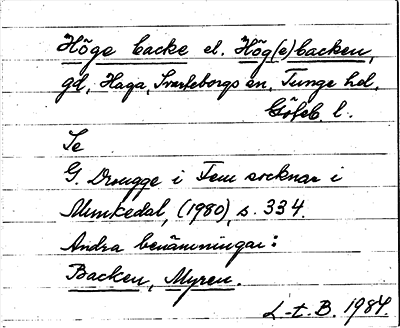 Höge backe el. Hög(e)backen,
gd, Haga, Svarteborgs sn, Tunge hd,
Göteb. l.
Se
G. Drougge i Fem socknar i
Munkedal, (1980), s. 334.
Andra benämningar:
Backen, Myren.
L-t. B. 1984.